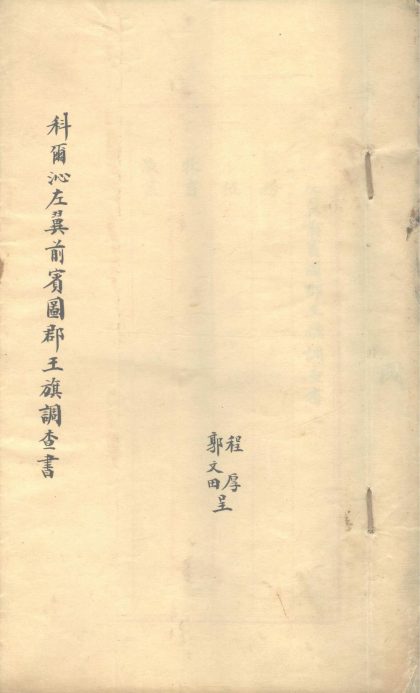 科爾沁左翼前賓圖郡王旗調查書
程厚
郭文田呈